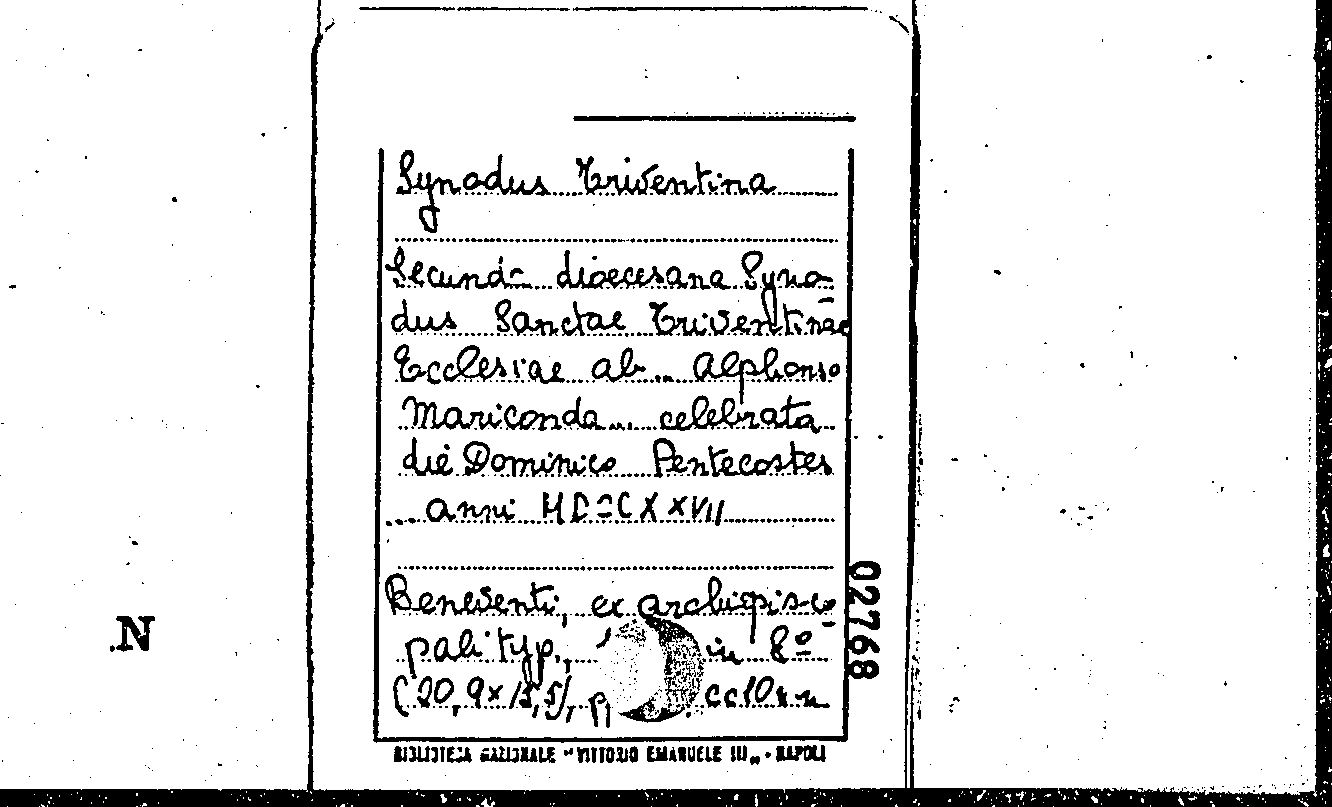 Synodus Triventina
Secunda dioecesana Syno-
dus Sanctae Triventinae
Ecclesiae ab... Alphonso
Mariconda... celebrata
die Dominico Pentecostes
... anni MDCCXXVII
Beneventi, ex archiepisco-
pali typ., in 8º
(20,9x15,5), cc10nn
BIBLIOTECA NAZIONALE "VITTORIO EMANUELE III" - NAPOLI
02768
.N